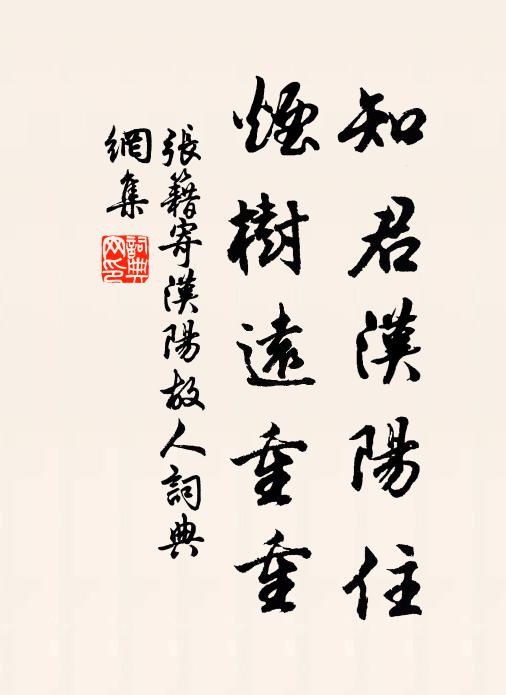 知君漢陽住
煙樹遠重重
張籍寄漢陽故人詞典
網集
詞典
网印